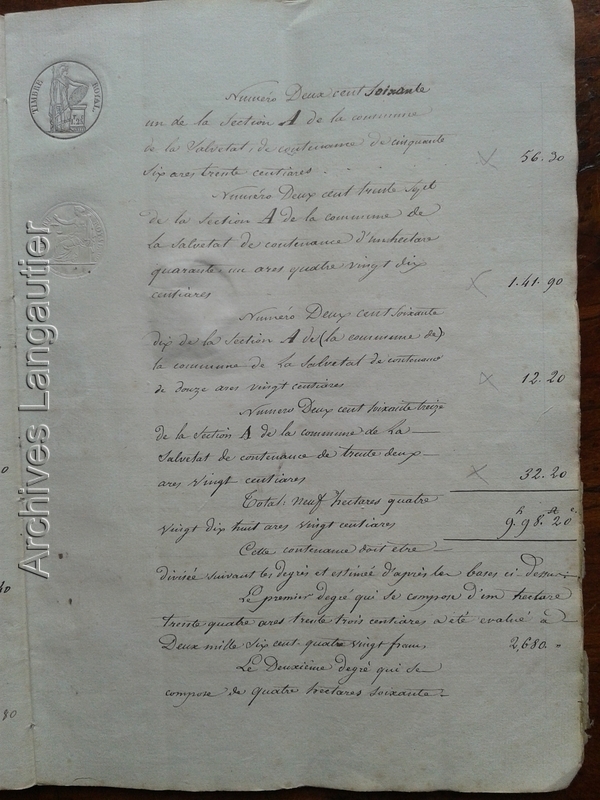 TIMBRE ROYAL
Numéro Deux cent soixante
un de la Section A de la commune
de la Salvetat, de contenance de cinquante
six ares trente centiares. 56.30
Numéro Deux cent trente sept
de la Section A de la commune de
la Salvetat de contenance d'un hectare
quarante un ares quatre vingt dix
centiares 1.41.90
Numéro Deux cent soixante
dix de la Section A de (la commune de)
la commune de La Salvetat de contenance
de douze ares vingt centiares 12.20
Numero Deux cent soixante treize
de la Section A de la commune de La
Salvetat de contenance de trente deux
ares vingt centiares 32.20
Total: neuf hectares quatre
vingt dix huit ares vingt centiares 9.98.20
Cette contenance doit etre
divisée suivant les degrés et estimée d'après les bases ci Dessus:
Le premier degré qui se compose d'un hectare
trente quatre ares trente trois centiares a été evalué à
Deux mille six cent quatre vingt francs 2,680. "
Le Deuxième degré qui se
compose de quatre hectares soixante
Archives Langautier
80